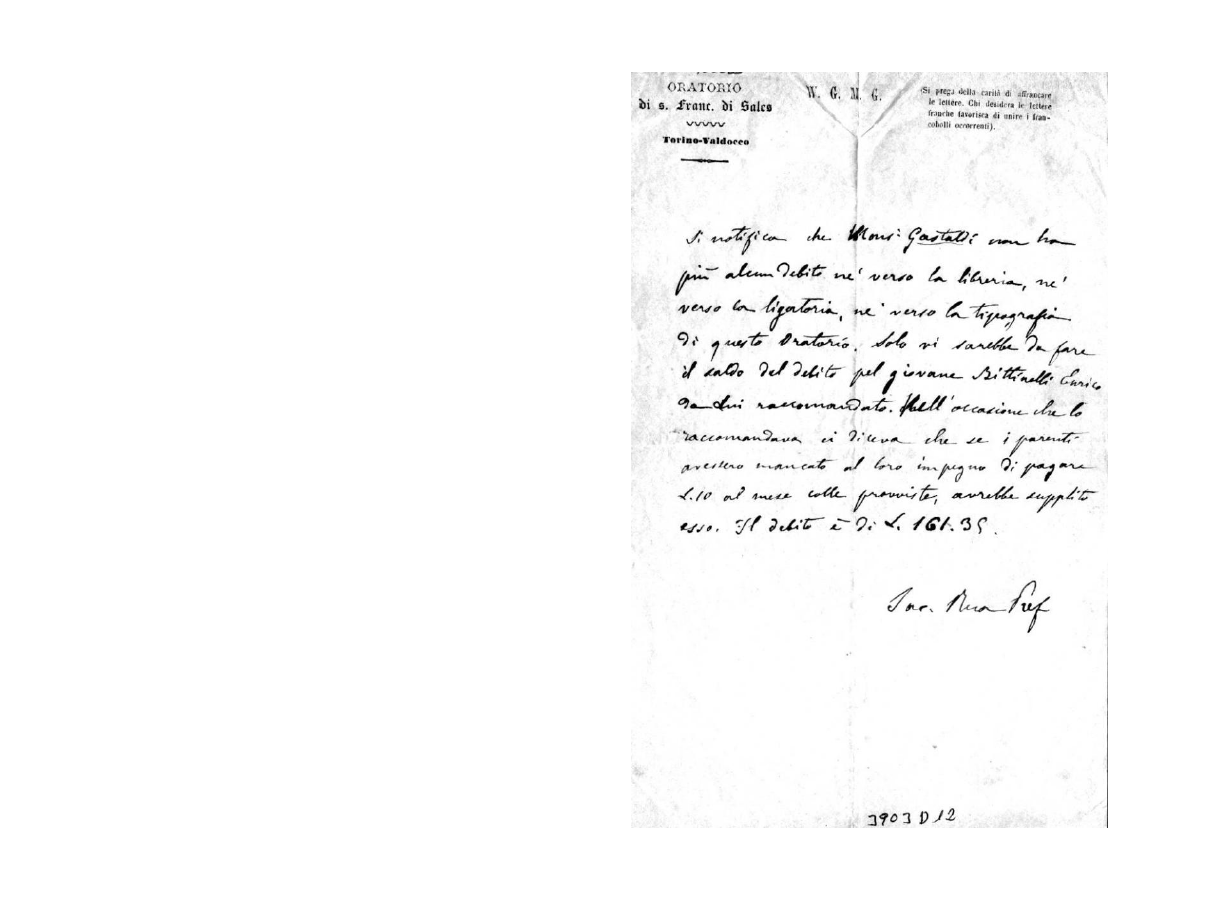 ORATORIO
di s. Franc. di Sales
Torino-Valdocco
W. G. M. G.
(Si prega della carità di affrancare
le lettere. Chi desidera le lettere
franche favorisca di unire i fran-
cobolli occorrenti).
Si notifica che Mons. Gastaldi non ha
più alcun debito nè verso la libreria, nè
verso la ligatoria, nè verso la tipografia
di questo Oratorio. Solo vi sarebbe da fare
il saldo del debito pel giovane Bittinelli Enrico
da Lui raccomandato. Nell'occasione che lo
raccomandava ci diceva che se i parenti
avessero mancato al loro impegno di pagare
L. 10 al mese colle provviste, avrebbe supplito
esso. Il debito è di L. 161.35.
Sac. Rua Pref
3903 D 12